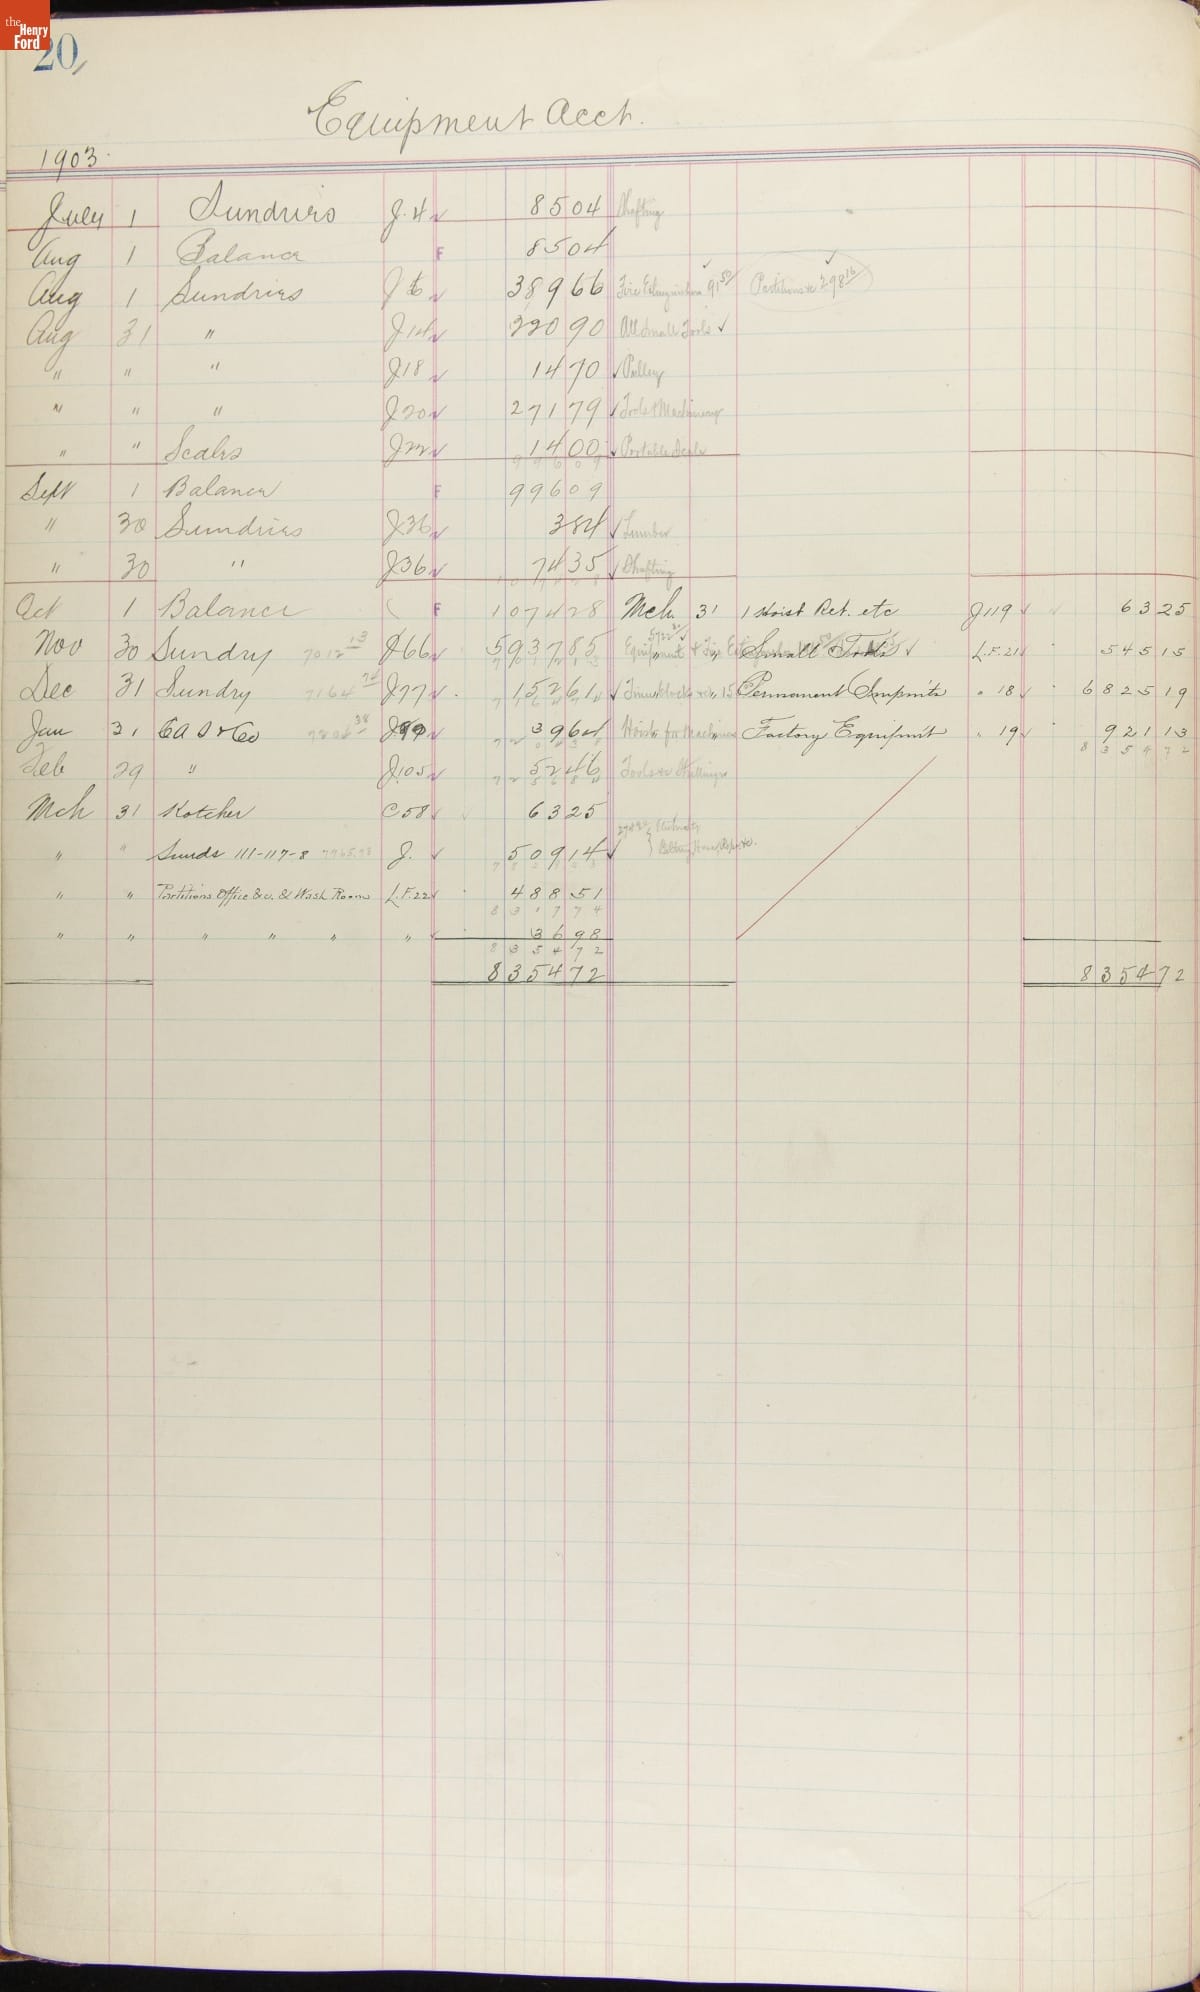 the Henry Ford
20
Equipment Acct.
1903
July 1 Sundries J.4 85 04 Shafting
Aug 1 Balance F 85 04
Aug 1 Sundries J6 389 66 Fire Extinguishers 91 50 Partitions &c 298 16
Aug 31 " J14 220 90 All Small Tools
" " " J18 14 70 Pulley
" " " J20 271 79 Tools & Machinery
" " Scales J22 14 00 Portable Scale
996 09
Sept 1 Balance F 996 09
" 30 Sundries J36 3 84 Lumber
" 30 " J36 74 35 Shafting
Oct 1 Balance F 1074 28 Mch. 31 1 Hoist Ret. etc J119 63 25
Nov 30 Sundry 7012 13 J66 5937 85 Equipment & Fire " " Small Tools L.F.21 545 15
Dec 31 Sundry 7164 74 J77 152 61 " Permanent Impmts " 18 6825 19
Jan 31 C A S & Co 38 39 64 Hoists for Machines " Factory Equipm't " 19 921 13
8354 72
Feb 29 " J105 52 46 Tools &
Mch 31 Kotcher C58 63 25
" " Sunds 111-117-8 J. 509 14
" " Partitions Office &c. & Wash Room L.F.22 488 51
8317 74
" " " " " " 36 98
8354 72
8354 72 8354 72